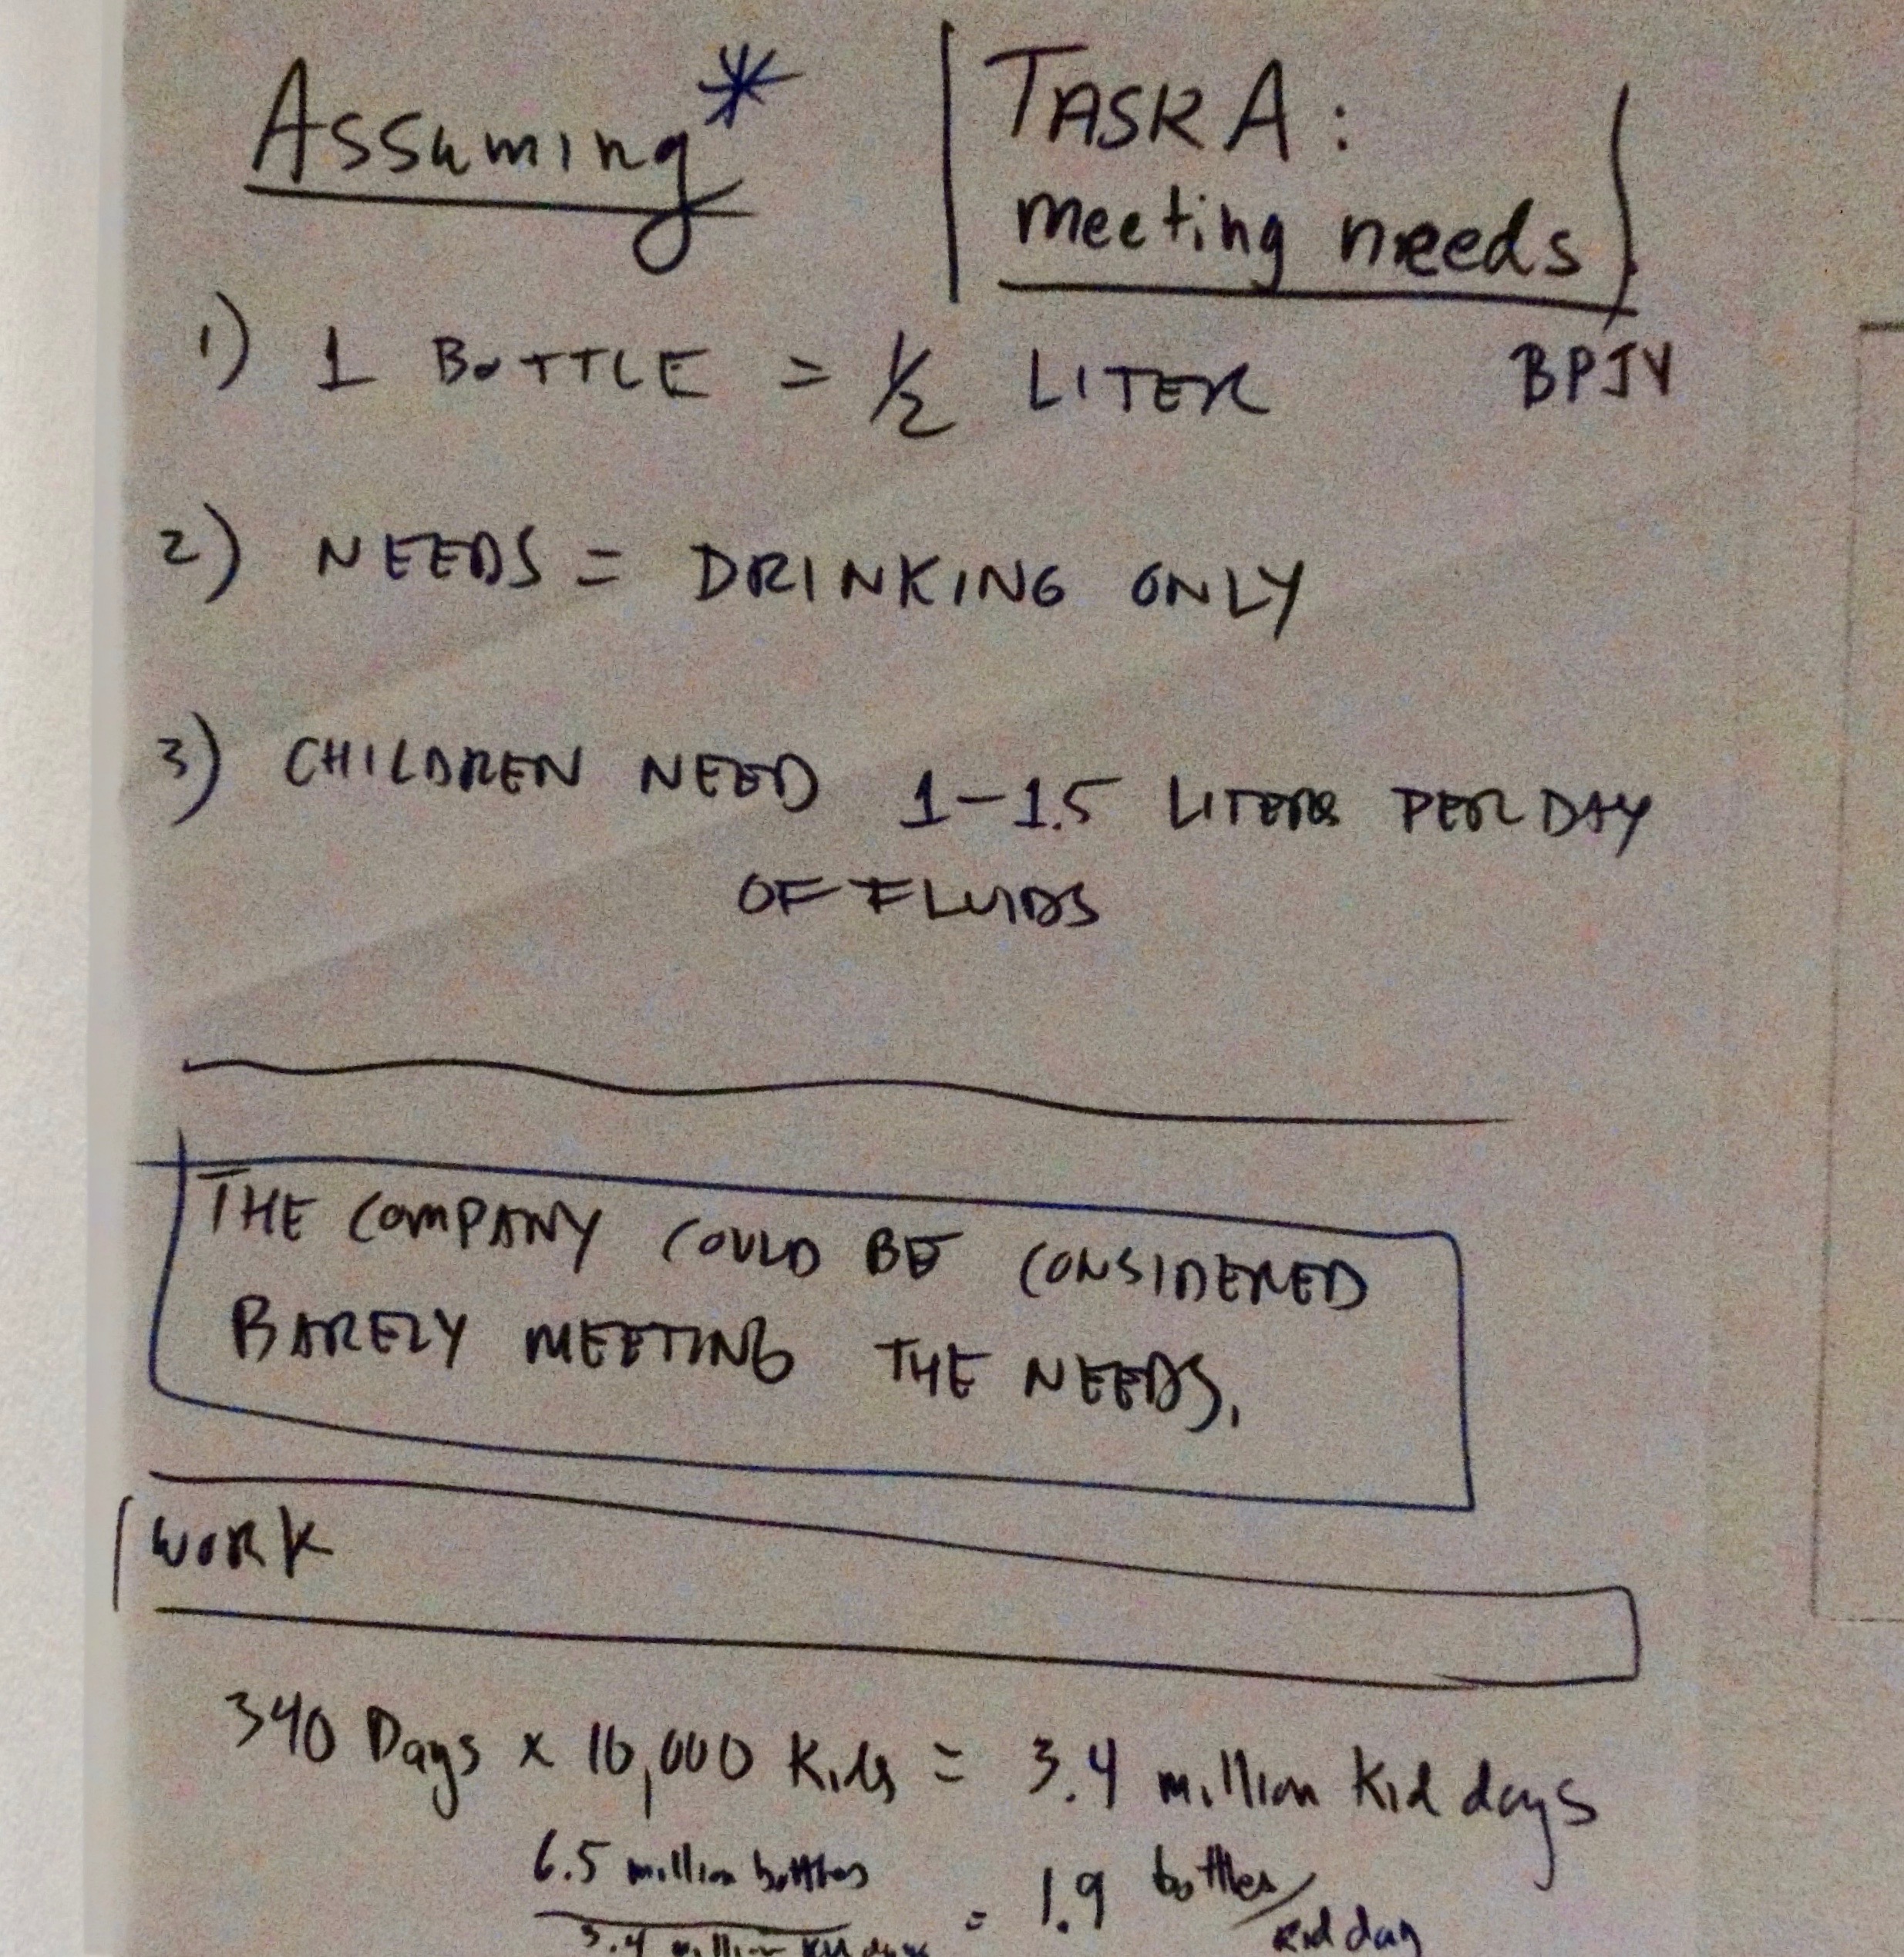 Assuming*
TASK A:
meeting needs
BPJY
1) 1 BOTTLE = 1/2 LITER
2) NEEDS = DRINKING ONLY
3) CHILDREN NEED 1-1.5 LITERS PER DAY
OF FLUIDS
THE COMPANY COULD BE CONSIDERED
BARELY MEETING THE NEEDS.
WORK
340 Days x 10,000 Kids = 3.4 million Kid days
6.5 million bottles
= 1.9 bottles/kid day
3.4 million Kid days